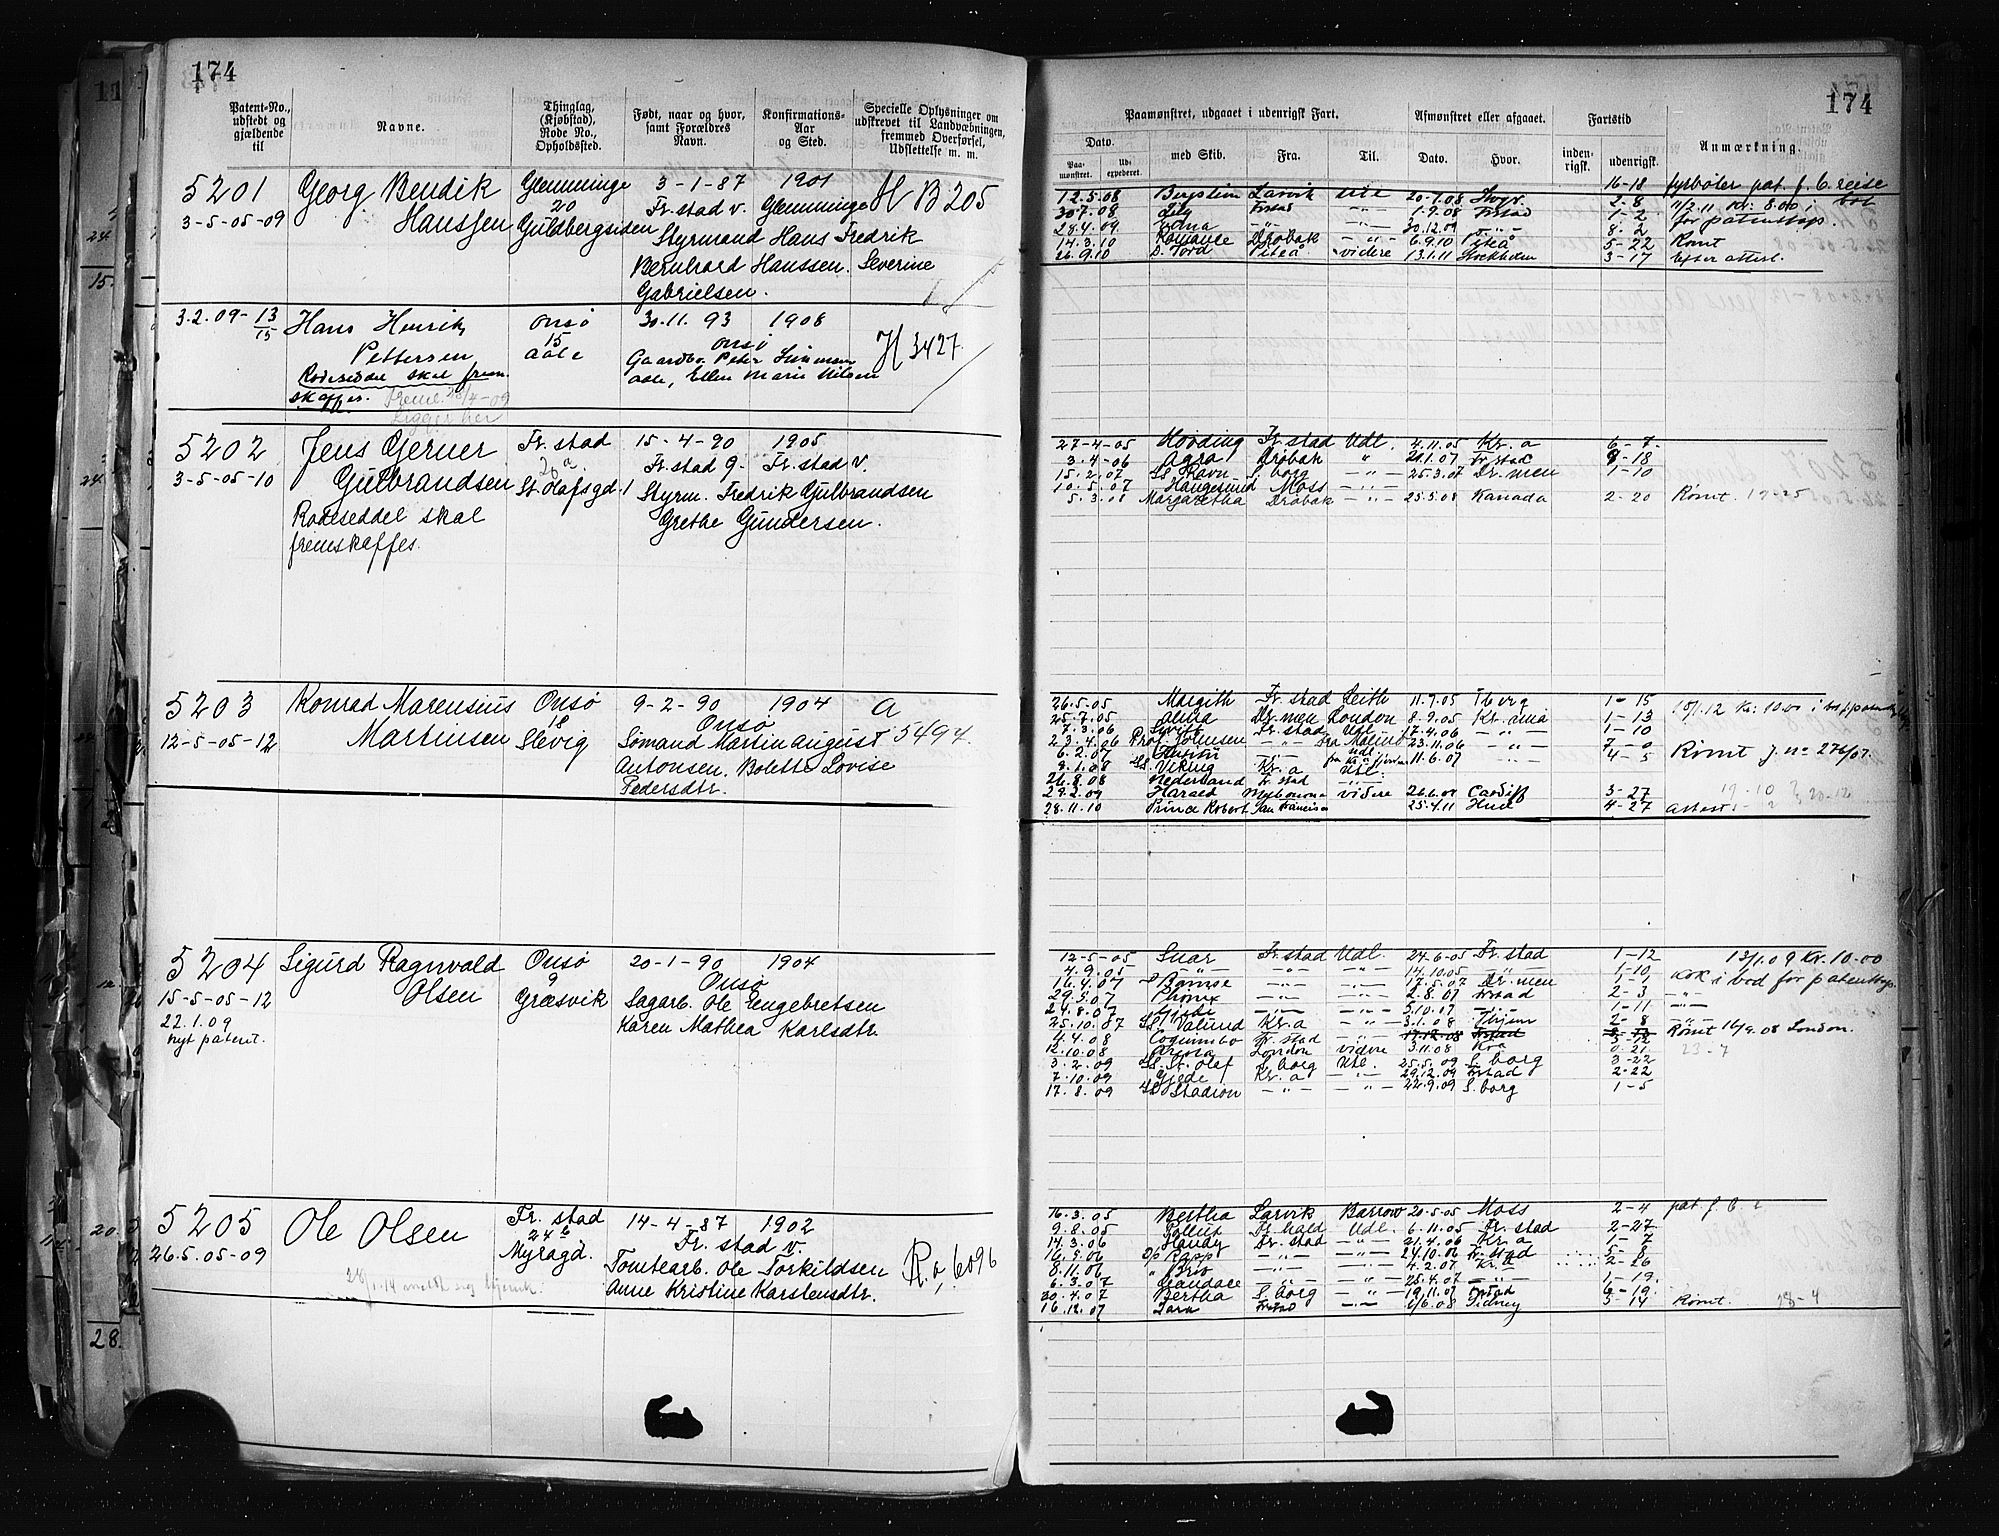 174
Patent-No., udstedt og gjældende til
Navne.
Thinglag, (Kjøbstad), Rode No., Opholdssted.
Født, naar og hvor, samt Forældres Navn.
Konfirmations-Aar og Sted.
Specielle Oplysninger om udskrevet til Landværningen, fremmed Overførsel, Udslettelse m. m.
5201 Georg Bendik Glemminge 3-1-87 1901 H B 205
Hanssen 20 Fr.stad v. Glemminge
3-5-05-09 Guldbergsiden Styrmand Hans Fredrik
Bernhard Hanssen. Severine
Gabrielsen.
3.2.09-13/15 Hans Henrik Onsø 30.11.93 1908 H 3427
Pettersen 15 Onsø
Aale Gaardbr. Peter Simonsen
Rodeseddel skal frem- Aale, Ellen Marie Nilsen
skaffes.
ligger her
5202 Jens Gerner Fr.stad 15-4-90 1905
Fr.stad Fr.stad v.
3-5-05-10 Gulbrandsen St. Olafsgd. 1 Styrm. Fredrik Gulbrandsen
Rodeseddel skal Grethe Gundersen.
fremskaffes.
5203 Konrad Marensius Onsø 9-2-90 1904 A
18 Onsø
12-5-05-12 Martinsen Slevig Sømand Martin August 5494
Antonsen. Bolette Lovise
Pedersdtr.
5204 Sigurd Ragnvald Onsø 20-1-90 1904
Olsen 9 Onsø
15-5-05-12 Græsvik Sagarb. Ole Engebretsen
22.1.09 Karen Mathea Karlsdtr.
nyt patent.
5205 Ole Olsen Fr.stad 14-4-87 1902
24b Fr.stad v.
26.5.05-09 Myragd. Tomtearb. Ole Torkildsen R.o. 6096
Anne Kristine Karstensdtr.
174
Paamønstret, udgaaet i udenrigsk Fart.
Afmønstret eller afgaaet.
Fartstid
Anmærkning.
Dato.
Paa-mønstret.
Ud-expederet.
med Skib.
Fra.
Til.
Dato.
Hvor.
inden-rigsk.
udenrigsk.
12.5.08 Larvik 20-7.08 16-18 fyrbøter pat. f. b. reise
30.7.08 Frstad 1.9.08 Frstad 2-8 11/2.11 Kr. 8.00 i bot
28.4.09 30.12.09 1-2 for patenttap.
14.3.10 Romance Drøbak 6.9.10 Piteå 8-2
26.9.10 D. Tord Piteå videre 13.1.11 Stockholm 5-22 Rømt
3-17 Efter attest.
27-4-05 Hovding Fr.stad Udl. 4.11.05 Kr.a 6-7
3-4-06 Agra Drøbak 21.1.07 Frstad 9-18
15.2.07 Ss Ravn S.borg 25.3.07 Dr.men 1-10
10-5-07 Haugesund Moss
5.3.08 Margaretha Drøbak 25.5.08 Kanada 2-20 Rømt.
26.5.05 Margith Fr.stad Leith 11.7.05 1-15
25.7.05 Alma Dr.men London 8-9.05 Kr.ania 1-13
7.3.06 Fr.stad Udl. 17-4.06 1-10
23.4.06 23.11.06 7-0
6.2.07 11.6.07 4-5 Rømt j.no 276/07.
8.1.08 Ss Viking Kr.a Udl.
26.8.08 Nederland Fr.stad
29.2.09 Harald videre 26.6.09 Cardiff 3-27
28.11.10 Prince Robert San Francisco 25.4.11 Hull 4-27 attest
12-5-05 Snar Fr.stad Udl. 24.6-05 Fr.stad 1-12 13/1.09 Kr. 10.00
4.9.05 14.10.05 1-10 i bod for patenttap.
16.4.07 17.5.07 Dr.men 1-1
29.5.07 Phønix 2.8.07 Frstad 2-3
24.8.07 3.10.07 1-11
25.10.07 Ss Valund Kr.a 3.1.08 2-8 Rømt 16/9.08 London.
4.4.08 Fr.stad 17.12.08 Frstad
12.10.08 London videre 3.11.08 Kra 0.21 23-7
3.2.09 Ss. St. Olaf S.borg Udl. 25.5.09 S.borg 3-22
7.10.09 Gjede Kr.a 29.12.09 Frstad 2-22
17.8.09 Ss Stadion 22.9.09 S.borg 1-5
16.3.05 Bertha Larvik Barrow 20-5-05 Moss 2-4 pat. f. b.
9.8.05 Fr.hald Udl. 6.11.05 Fr.stad 2-27
14.3.06 Handy Fr.stad 21.4.06 Kr.a 1-7
16.5.06 24.10.06 Fr.stad 5-8
8.11.06 Brio 4.2.07 Kr.a 2-26
6.3.07 25.4.07 1-19.
30.4.07 Bertha S.borg 19.11.07 Frstad 6-19
16.12.07 Frstad 6/6.08 Sidney 5-14 Rømt. 28-4